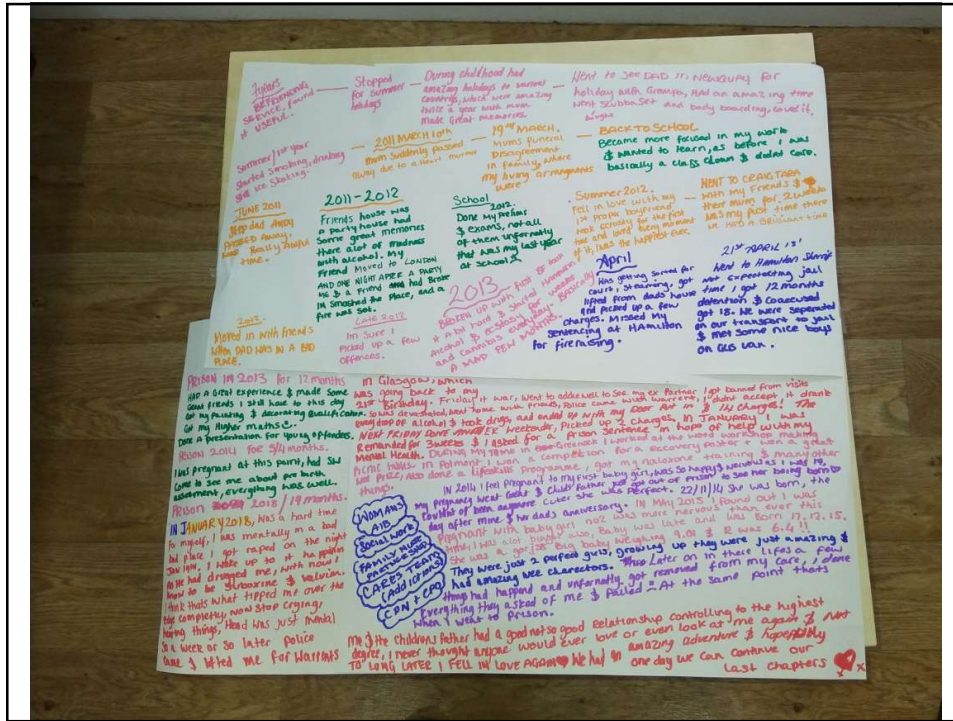 7 years
BEFRIENDING
SERVICE, found
it USEFUL.
Stopped
for Summer
holidays
During childhood had
amazing holidays to various
countrys, which were amazing
twice a year with mum
made Great memories.
Went to see DAD in NEWQUAY for
holiday with Grampa, Had an amazing time
went scubba set and body boarding, loved it.
Summer/1st year
Started smoking, drinking
Still ice Skating.
2011 MARCH 10th
Mum Suddenly passed
away due to a Heart murmur
19th MARCH.
Mums funeral
Disagreement
in family, where
my living arrangments
were
BACK TO SCHOOL
Became more focused in my work
& wanted to learn, as before I was
basically a class clown & didnt care.
JUNE 2011
Step dad
Passed away,
was really
time.
2011-2012
Friends house was
a party house had
Some great memories
there alot of madness
with alcohol. My
Friend Moved to LONDON
AND ONE NIGHT AFTER A PARTY
ME & a Friend had Broke
in smashed the Place, and a
fire was set.
School
2012.
Done My Prelims
& exams, not all
of them unfortnatly
that was my last year
at School
Summer 2012.
Fell in love with my
1st Proper boyfriend,
took ecstasty for the first
time and loved every moment
of it, was the happiest ever.
WENT TO CRAIG TARA
with My Friends &
there mum for 2 weeks
was my first time there
we Had a Brilliant time
2012.
Moved in with friends
When DAD WAS IN A BAD
PLACE.
LATE 2012
Im Sure I
Picked up a few
offences.
2013
BROKEN UP with first BF took
it a bit hard & started Hammering
Alcohol & Ecstasy for weeks
and Cannabis everyday. Basically
A MAD FEW MONTHS.
April
Was getting sorted for
court, steaming, got
lifted from dads house
and picked up a few
charges. Missed My
Sentencing at HAMilton
for fireraising.
21st APRIL 13'
Went to Hamilton Sheriff
not expectecting jail
time I got 12 months
detention & Coaccused
got 18. We were seperated
on our transport to jail
& met some nice boys
on G4s van.
PRISON IN 2013 for 12 months
HAD A Great experience & made some
Great friends I still have to this day
Got my Painting & decorating Qualification.
Got my Higher maths
Done A presentation for young offenders.
PRISON 2014 for 3/4 months.
I was pregnant at this point, had SW
come to see me about pre birth
assesment, everything was well.
PRISON 2018/19 months.
IN JANUARY 2018, was a hard time
for myself, I was mentally in a bad
bad place I got raped on the night
Jan 19th. I woke up to it happenin
as he had drugged me, with now I
know to be suboxine & valium.
I think thats what tipped me over the
edge completly, now stop crying,
hearing things, Head was just mental
So a week or so later police
came & lifted me for warrants
in Glasgow, which
was going back to my
21st Birthday. Friday it was, went to addiewell to see my ex Partner, I got banned from visits
so was devastated, went home with friends, Police came with warrent, I didnt accept it drank
every drop of alcohol & took drugs, and ended up with my Door Put in & 14 charges! The
Next FRIDAY DONE ANOTHER weekender, Picked up 2 charges. IN JANUARY I was
Remanded for 3 weeks & I asked for a Prison Sentence in hope of help with my
Mental Health. During my time in I worked at the wood workshop making
Picnic tables in Polmont I won a competition for a recovery poster & won a great
wee Prize, Also done a lifeskills Programme, got my naloxone training & many other
things.
IN 2014 I feel Pregnant to my first baby girl, was so happy & nervous as I was 19,
my pregnancy went Great & Childs Father Just got out of Prison to see her being born to
couldnt of been anymore cuter she was perfect. 22/11/14 she was born, the
day after mine & her dads anniversary. IN MAY 2015 I found out I was
Pregnant with baby girl no2 was more nervous than ever this
time! I was alot bigger also. Baby was late and was Born 17.12.15.
She was a gorjus Big baby weighing 9.01 & was 6.4!!
They were just 2 perfect girls, growing up they were just amazing &
had amazing wee charectors. Later on in there lifes a few
things had happend and unfortnatly got removed from my care, I done
Everything they asked of me & failed At the same point thats
when I went to prison.
WOMANS
AID
Social work
FAMILY NURSE
PARTNERSHIP
CARES TEAM
(Addictions)
CPN + CPO
Me & the childrens Father had a good not so good relationship controlling to the highest
degree, I never thought anyone would ever love or even look at me again & not
TO LONG LATER I FELL IN LOVE AGAIN We had an amazing adventure & hopefully
one day we can continue our
last chapters x